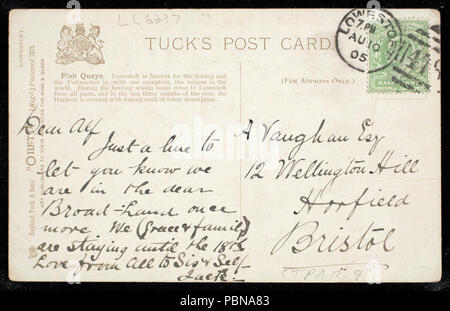 LL6237
TUCK'S POST CARD
LOWESTOFT
7.PM
AU 10
05
Fish Quays. Lowestoft is famous for the fishing and
the Fishmarket is, with one exception, the largest in the
world. During the herring season boats come to Lowestoft
from all parts, and in the last three months of the year, the
Harbour is covered with fishing craft of every description.
(For Address Only.)
LOWESTOFT.
Dear Alf
Just a line to
let you know we
are in the dear
Broad-land once
more. We (Grace & family)
are staying until the 18th
Love from All to Sis & Self
Jack
A Vaughan Esq
12 Wellington Hill
Horfield
Bristol
alamy
Image ID: PBNA83
www.alamy.com